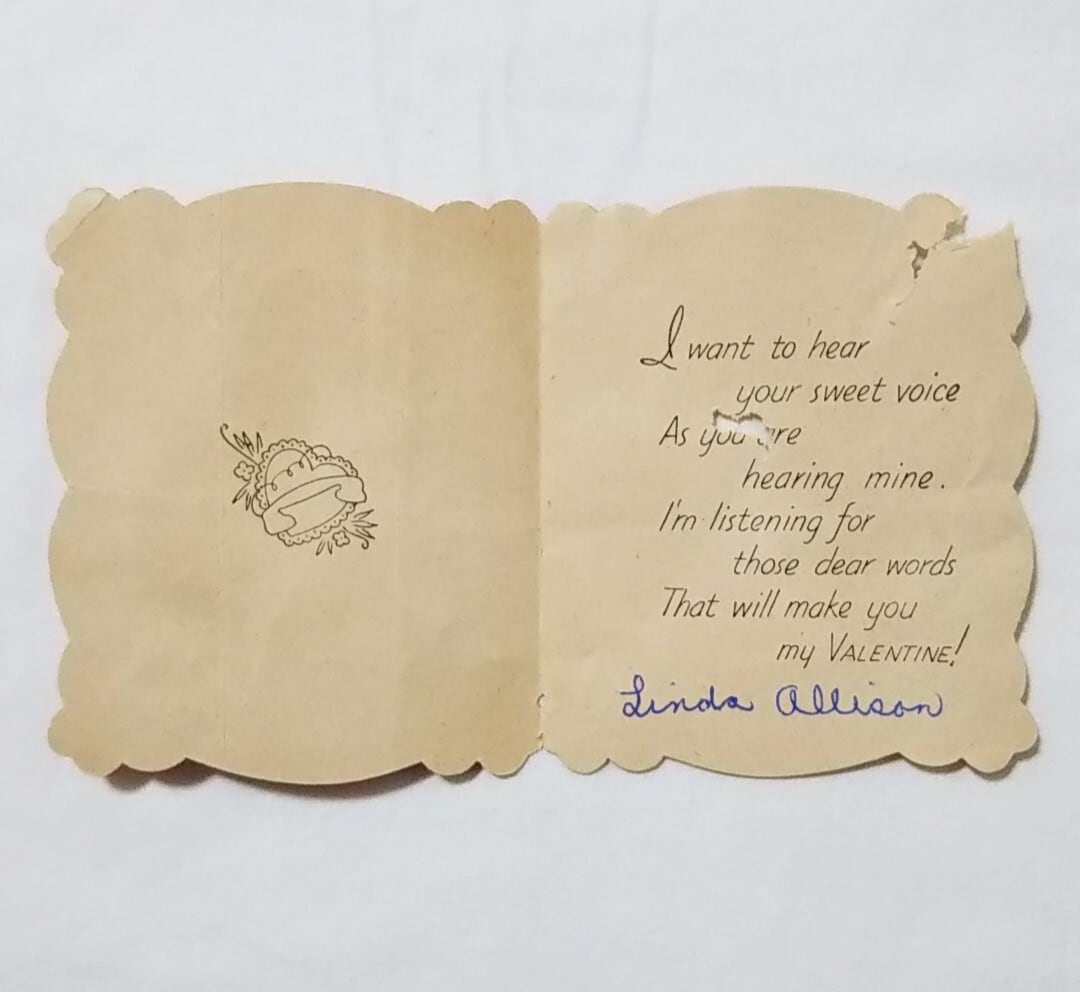 I want to hear
your sweet voice
As you are
hearing mine.
I'm listening for
those dear words
That will make you
my VALENTINE!
Linda Allison